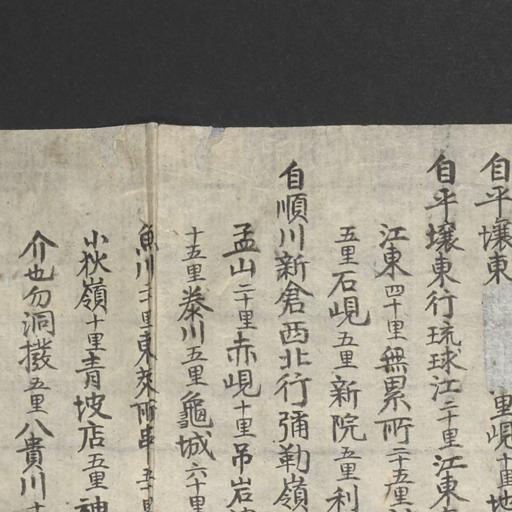 自平壤東里峴十里地
自平壤東行琉球江二十里江東
江東四十里無累所二十五里
五里石峴五里新院五里利
自順川新倉西北行彌勒嶺
孟山二十里赤峴十里吊岩
十五里泰川五里龜城六十里
魚川二十里東萊所串五十里
小狄嶺十里青坡店五里神
介也勿洞撥五里八貴川十